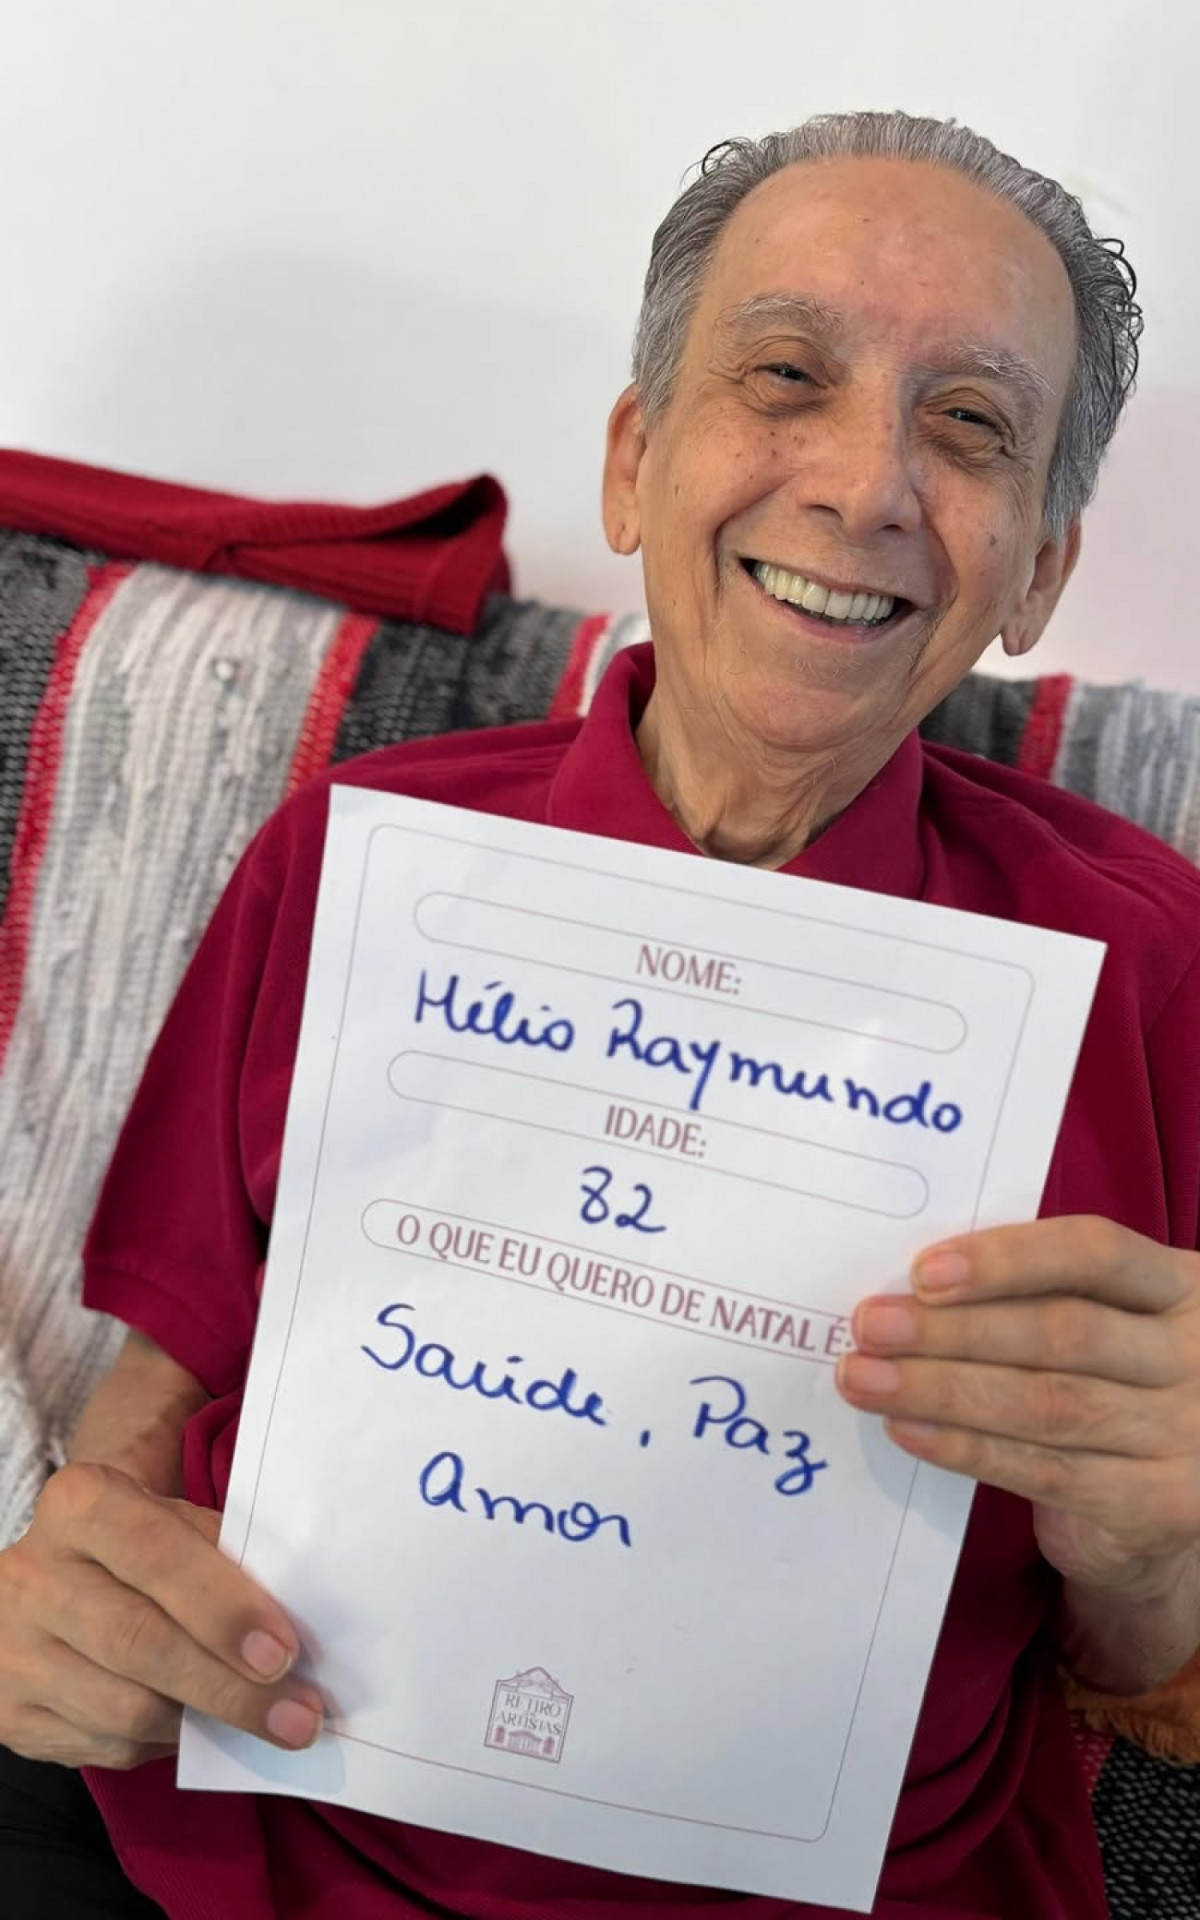 NOME:
Hélio Raymundo
IDADE:
82
O QUE EU QUERO DE NATAL É:
Saúde, Paz
Amor
RETIRO
DOS
ARTISTAS